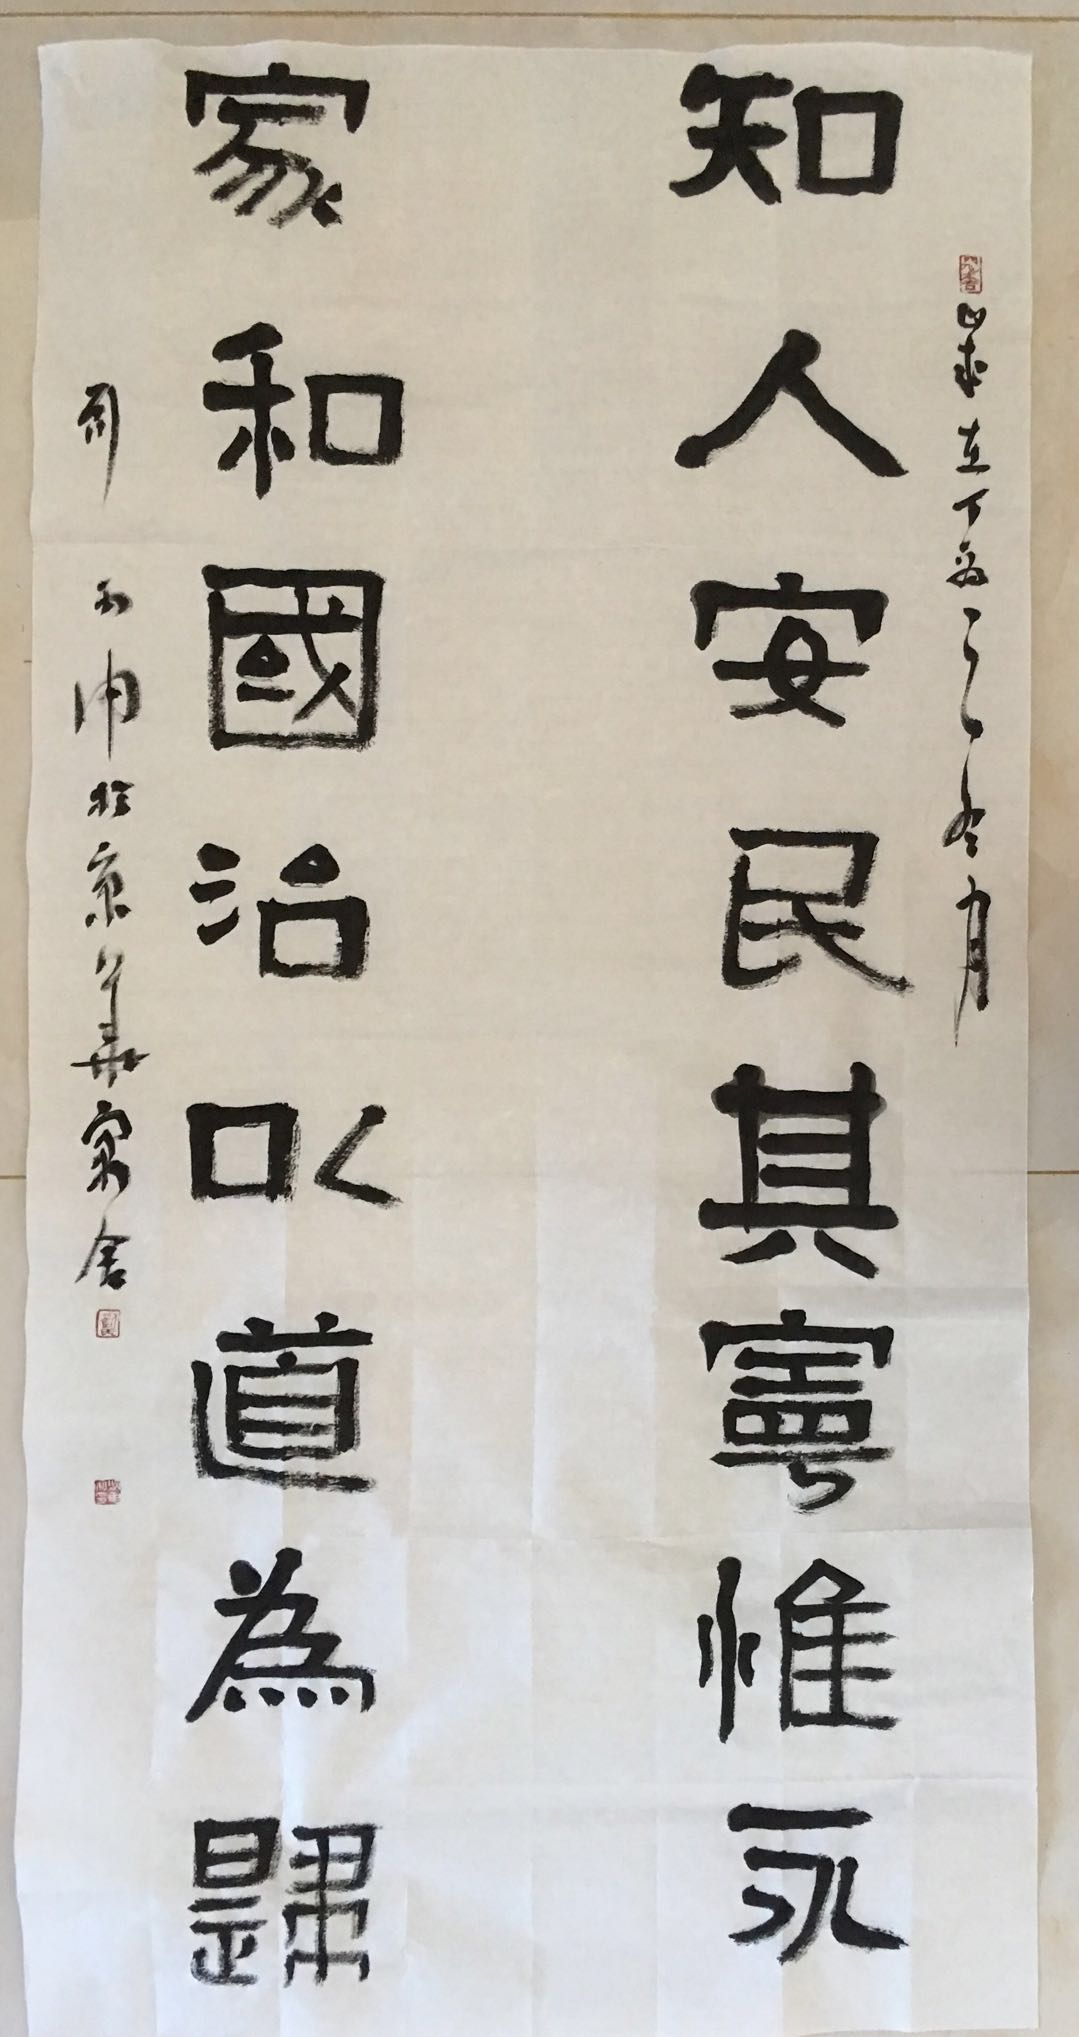 歲在丁酉之冬月
知人安民其寧惟永
家和國治以道為歸
於京華寓舍